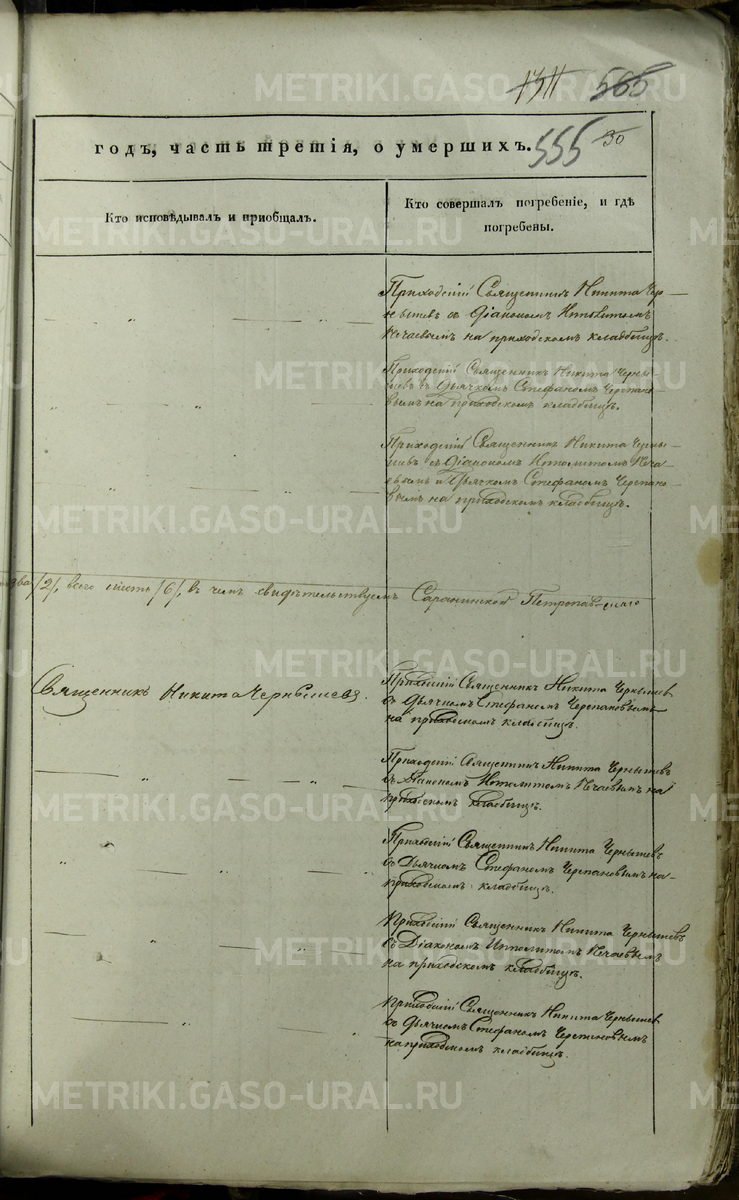 1311 565
годъ, часть третія, о умершихъ. 555 30
Кто исповѣдывалъ и приобщалъ.
Кто совершалъ погребеніе, и гдѣ
погребены.
Приходскій Священникъ Никита Чер-
нышевъ съ Діакономъ Ипполитомъ
Нечаевымъ на приходскомъ кладбищѣ.
Приходскій Священникъ Никита Черны-
шевъ съ Дьячкомъ Стефаномъ Черпано-
вымъ на приходскомъ кладбищѣ.
Приходскій Священникъ Никита Черны-
шевъ съ Діакономъ Ипполитомъ Неча-
евымъ и Дьячкомъ Стефаномъ Черепано-
вымъ на приходскомъ кладбищѣ.
два /2/, всего шесть /6/, въ чемъ свидѣтельствуемъ Саранинской Петропав-скаго
Священникъ Никита Чернышевъ.
Приходскій Священникъ Никита Чернышев
съ Дьячкомъ Стефаномъ Черепановымъ
на приходскомъ кладбищѣ.
Приходскій Священникъ Никита Чернышевъ
съ Діакономъ Ипполитомъ Нечаевымъ на
приходскомъ кладбищѣ.
Приходскій Священникъ Никита Чернышевъ
съ Дьячкомъ Стефаномъ Черпановымъ на-
приходскомъ кладбищѣ.
Приходскій Священникъ Никита Чернышевъ
съ Діакономъ Ипполитомъ Нечаевымъ
на приходскомъ кладбищѣ.
Приходскій Священникъ Никита Чернышев
съ Дьячкомъ Стефаномъ Черепановымъ
на приходскомъ кладбищѣ.
METRIKI.GASO-URAL.RU